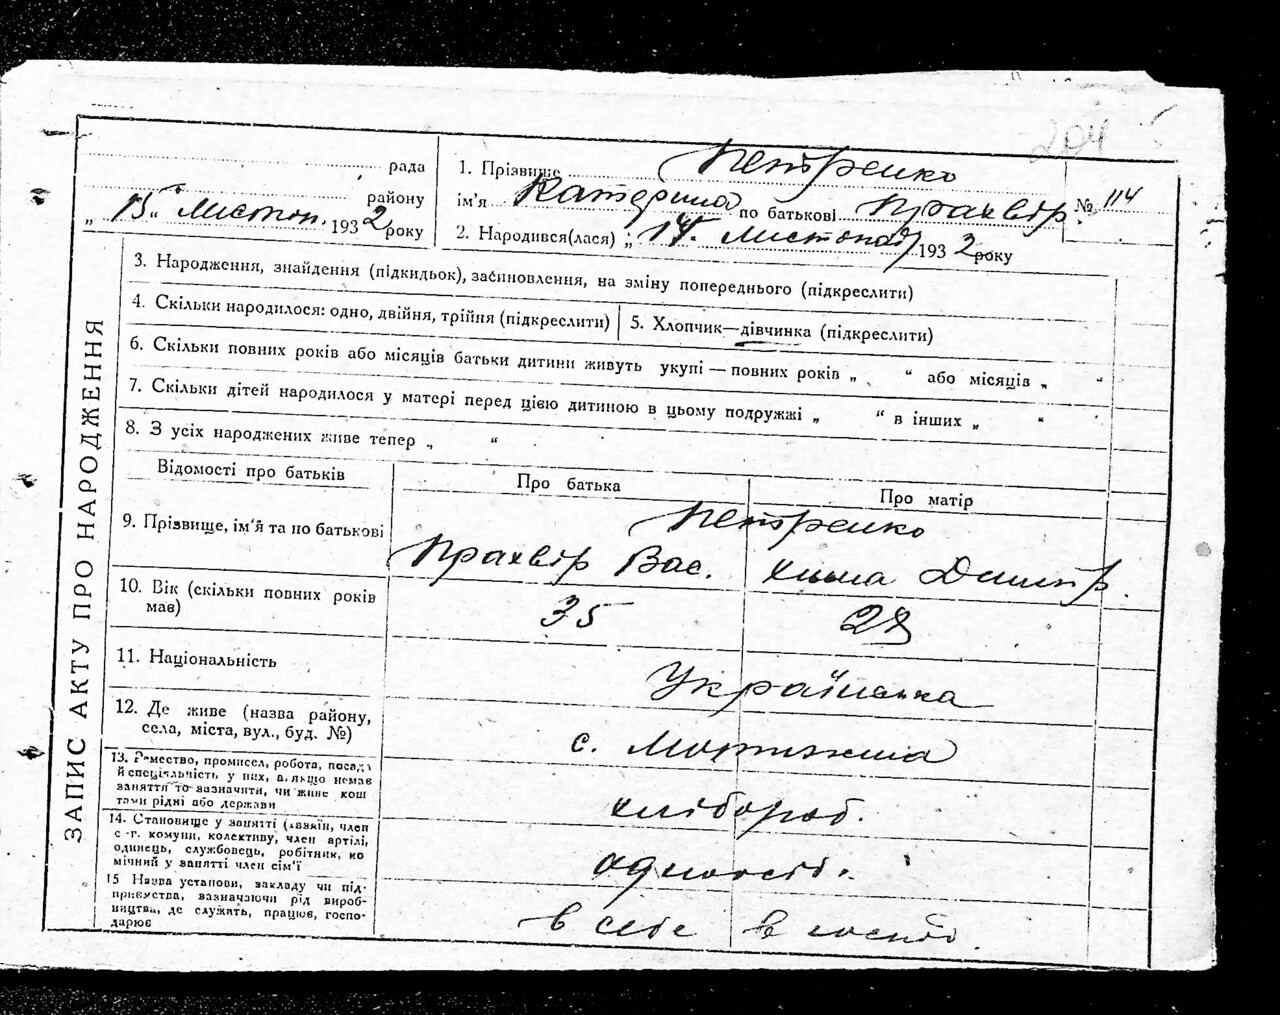 204
рада
району
„ 15 “ Листоп. 1932 року
1. Прізвище Петренко
ім'я Катерина по батькові Прахвір.
№ 114
2. Народився(лася) „ 14. Листопад 1932 року
ЗАПИС АКТУ ПРО НАРОДЖЕННЯ
3. Народження, знайдення (підкидьок), засиновлення, на зміну попереднього (підкреслити)
4. Скільки народилося: одно, двійня, трійня (підкреслити)
5. Хлопчик—дівчинка (підкреслити)
6. Скільки повних років або місяців батьки дитини живуть укупі — повних років „ “ або місяців „ “
7. Скільки дітей народилося у матері перед цією дитиною в цьому подружжі „ “ в інших „ “
8. З усіх народжених живе тепер „ “
Відомості про батьків
Про батька
Про матір
9. Прізвище, ім'я та по батькові
Петренко
Прахвір Вас.
Хима Дмитр.
10. Вік (скільки повних років
має)
35
28
11. Національність
Українська
12. Де живе (назва району,
села, міста, вул., буд. №)
с. Мотижина
13. Ремество, промисел, робота, посада
й спеціяльність у них, а якщо немає
заняття то зазначити, чи живе кош
тами рідні або держави
хлібороб.
14. Становище у занятті (хазяїн, член
с-г. комуни, колективу, член артілі,
одинець, службовець, робітник, по
мічний у занятті член сім'ї
одноосіб.
15 Назва установи, закладу чи під-
приємства, вазначаючи рід вироб-
ництва, де служить, працює, госпо-
дарює
в себе в госпо